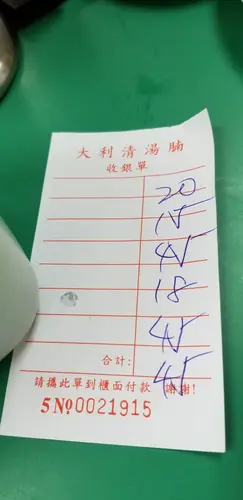 大利清湯腩
收銀單
20
15
45
18
45
合計:
45
請攜此單到櫃面付款 謝謝!
5 No 0021915